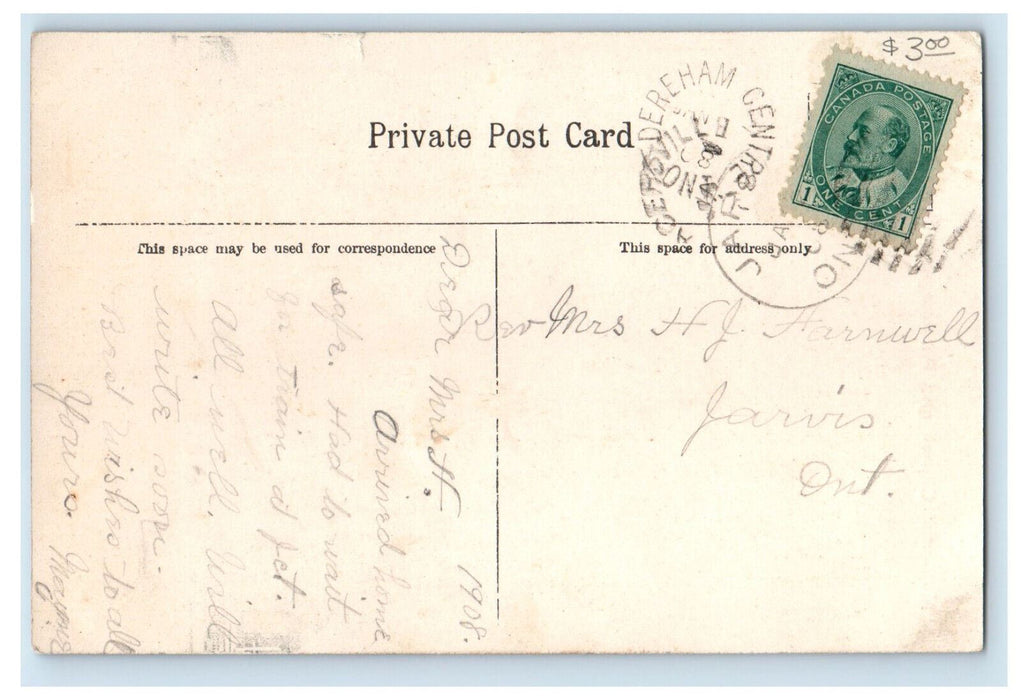 $ 3.00
Private Post Card
DEREHAM CENTRE
ONT
JARVIS
ONT
08
CANADA POSTAGE
1 ONE CENT 1
This space may be used for correspondence
This space for address only
1908.
Dear Mrs H.
Arrived home
safe. Had to wait
for train at Jct.
All well. Will
write soon.
Best wishes to all
Yours. Mayme
Rev Mrs H. J. Farnwell
Jarvis
Ont.